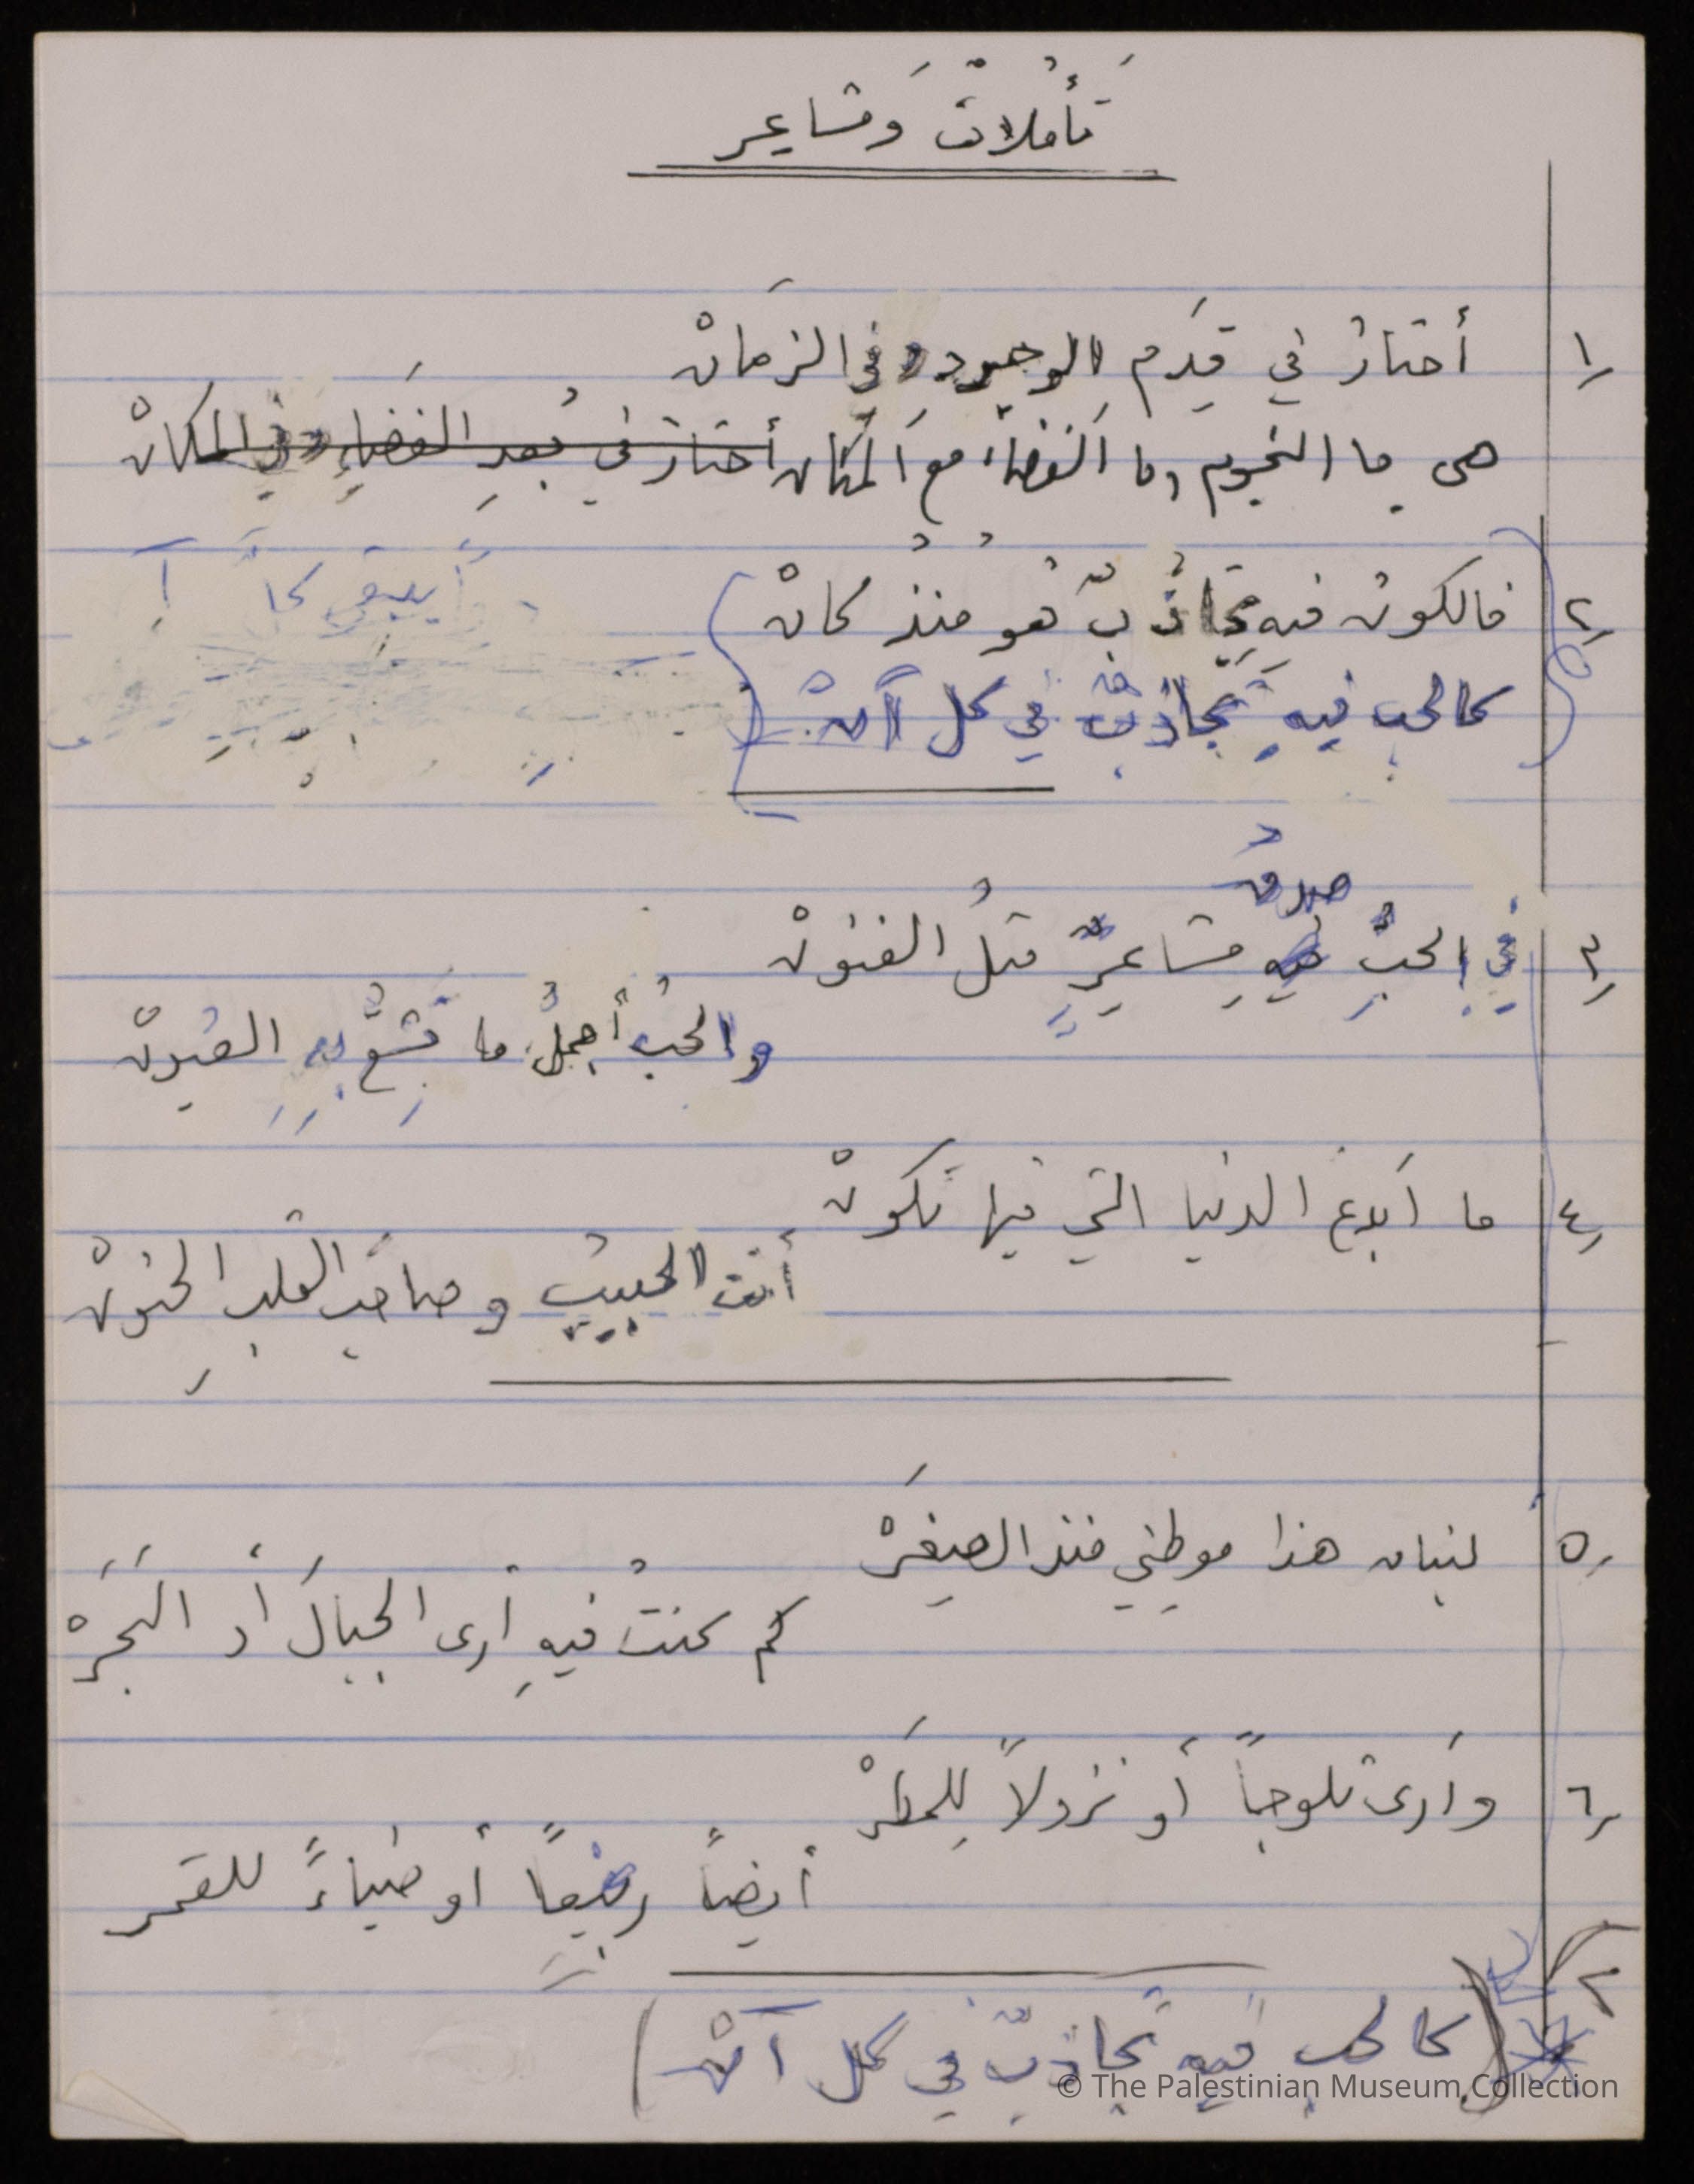 تأمُّلاتٌ وَمشاعِر
١) أحتارُ في قِدَمِ الوجودِ وفي الزمَانْ
هي ما النجوم وما الفضاءُ مع المَكان أحتارُ في بُعدِ الفضَاءِ وفي المكانْ
٢) فالكونُ فيهِ تجاذُبٌ هُو منذُ كانْ
كالحب فيهِ تَجاذبٌ في كل آنْ
صدقُ
٣) في الحبِّ فيهِ مشاعرٍ مثلُ الفنونْ
والحُب أجملُ ما تَشِعُّ بهِ العُيونْ
٤) ما أبدع الدنيا التي فيها تكونْ
أنت الحبيبُ وصاحَب القلبِ الحنونْ
٥) لبنان هذا موطِني منذ الصِغَرْ
كم كنتُ فيهِ أرى الجبالَ أو الشَجَرْ
٦) وأرى ثلوجاً أو نزولاً لِلمطَرْ
أيضاً ربيعاً أو ضياءً للقمر
٢
(كالحب فيهِ تَجاذبٌ في كل آنْ)
© The Palestinian Museum Collection